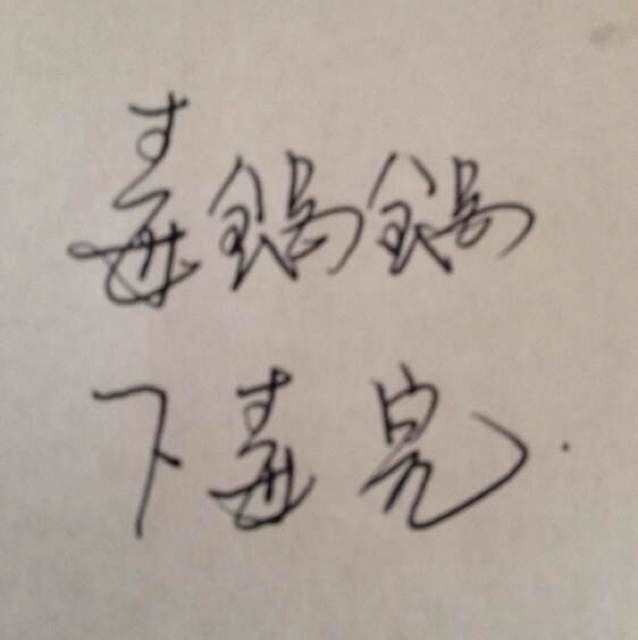 毒鍋鍋
下毒鬼.